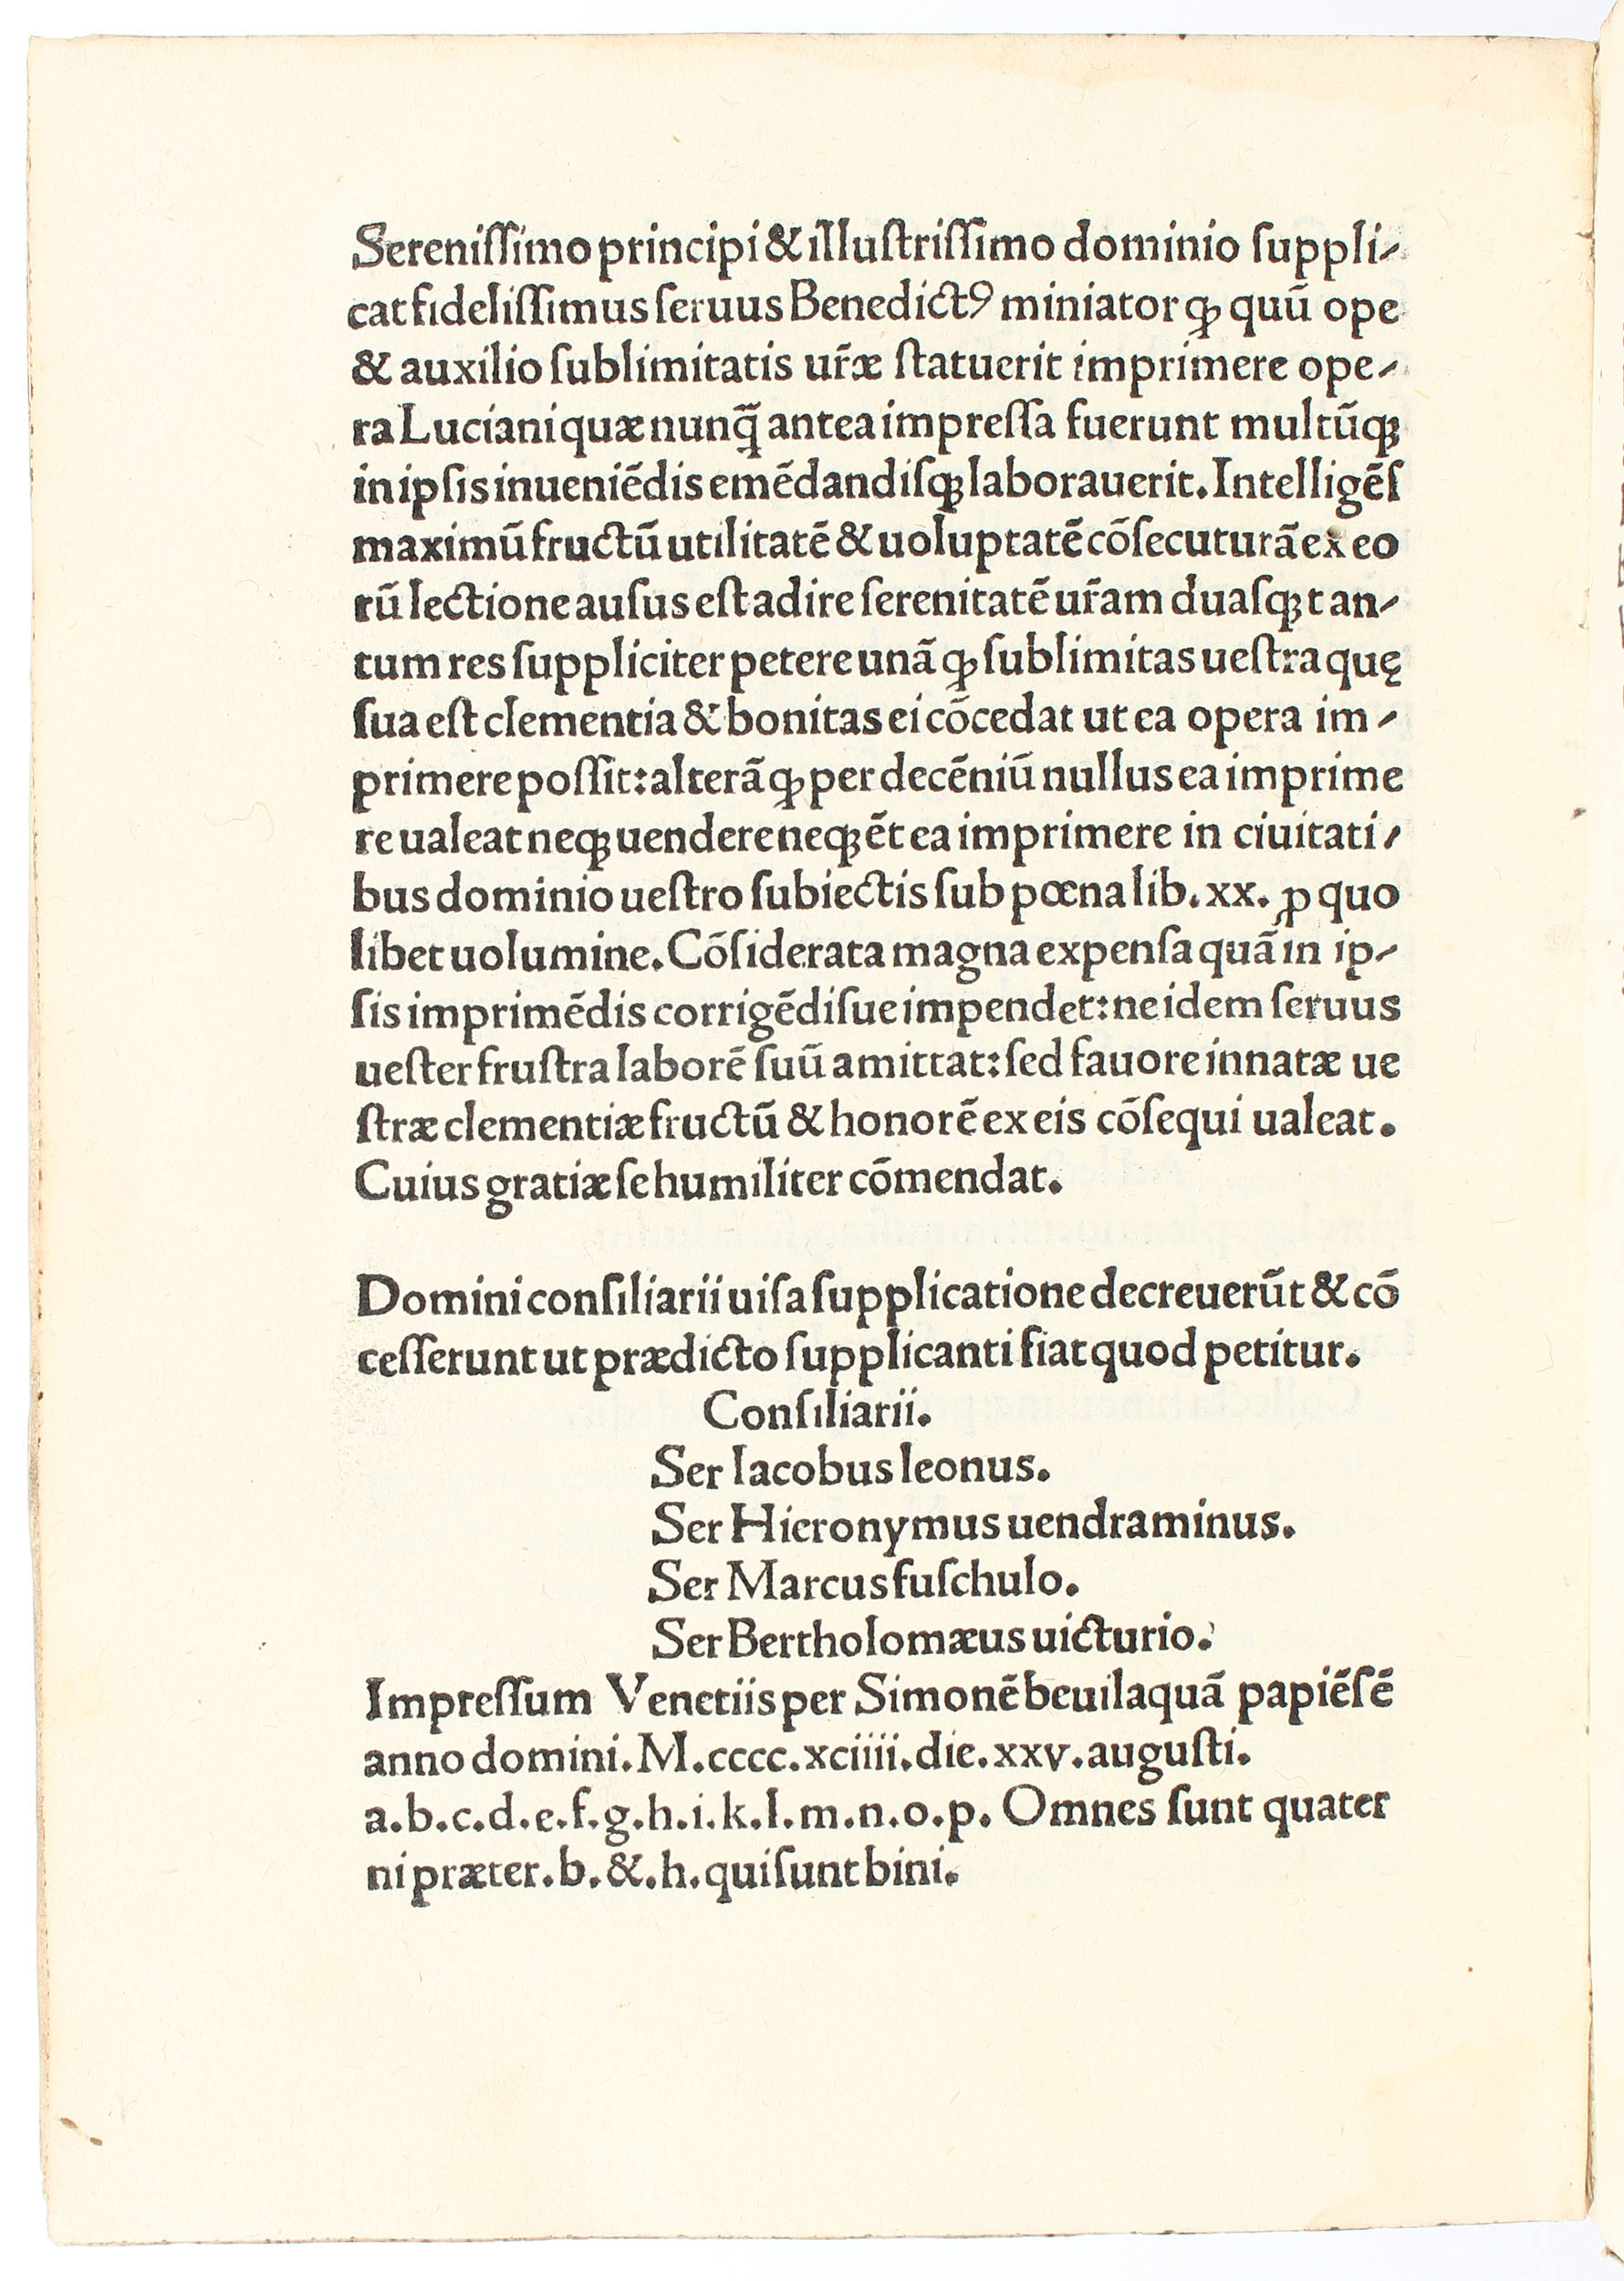 Sereniſſimo principi & illuſtriſſimo dominio ſuppli-
cat fideliſſimus ſeruus Benedictꝰ miniator ꝙ quū ope
& auxilio ſublimitatis ur̄æ ſtatuerit imprimere ope-
ra Luciani quæ nunq̄ antea impreſſa fuerunt multūqꝫ
in ipſis inueniēdis emēdandiſqꝫ laborauerit. Intelligēſ
maximū fructū utilitatē & uoluptatē cōſecuturā ex eo
rū lectione auſus eſt adire ſerenitatē ur̄am duaſqꝫ tan-
tum res ſuppliciter petere unā ꝙ ſublimitas ueſtra quę
ſua eſt clementia & bonitas ei cōcedat ut ea opera im-
primere poſſit: alterā ꝙ per decēniū nullus ea imprime
re ualeat neqꝫ uendere neqꝫ ēt ea imprimere in ciuitati-
bus dominio ueſtro ſubiectis ſub pœna lib. xx. ꝓ quo
libet uolumine. Cōſiderata magna expenſa quā in ip-
ſis imprimēdis corrigēdiſue impendet: ne idem ſeruus
ueſter fruſtra laborē ſuū amittat: ſed fauore innatæ ue
ſtræ clementiæ fructū & honorē ex eis cōſequi ualeat.
Cuius gratiæ ſe humiliter cōmendat.
Domini conſiliarii uiſa ſupplicatione decreuerūt & cō
ceſſerunt ut prædicto ſupplicanti fiat quod petitur.
Conſiliarii.
Ser Iacobus leonus.
Ser Hieronymus uendraminus.
Ser Marcus fuſchulo.
Ser Bertholomæus uicturio.
Impreſſum Venetiis per Simonē beuilaquā papiēſē
anno domini. M. cccc. xciiii. die. xxv. auguſti.
a. b. c. d. e. f. g. h. i. k. l. m. n. o. p. Omnes ſunt quater
ni præter. b. &. h. qui ſunt bini.